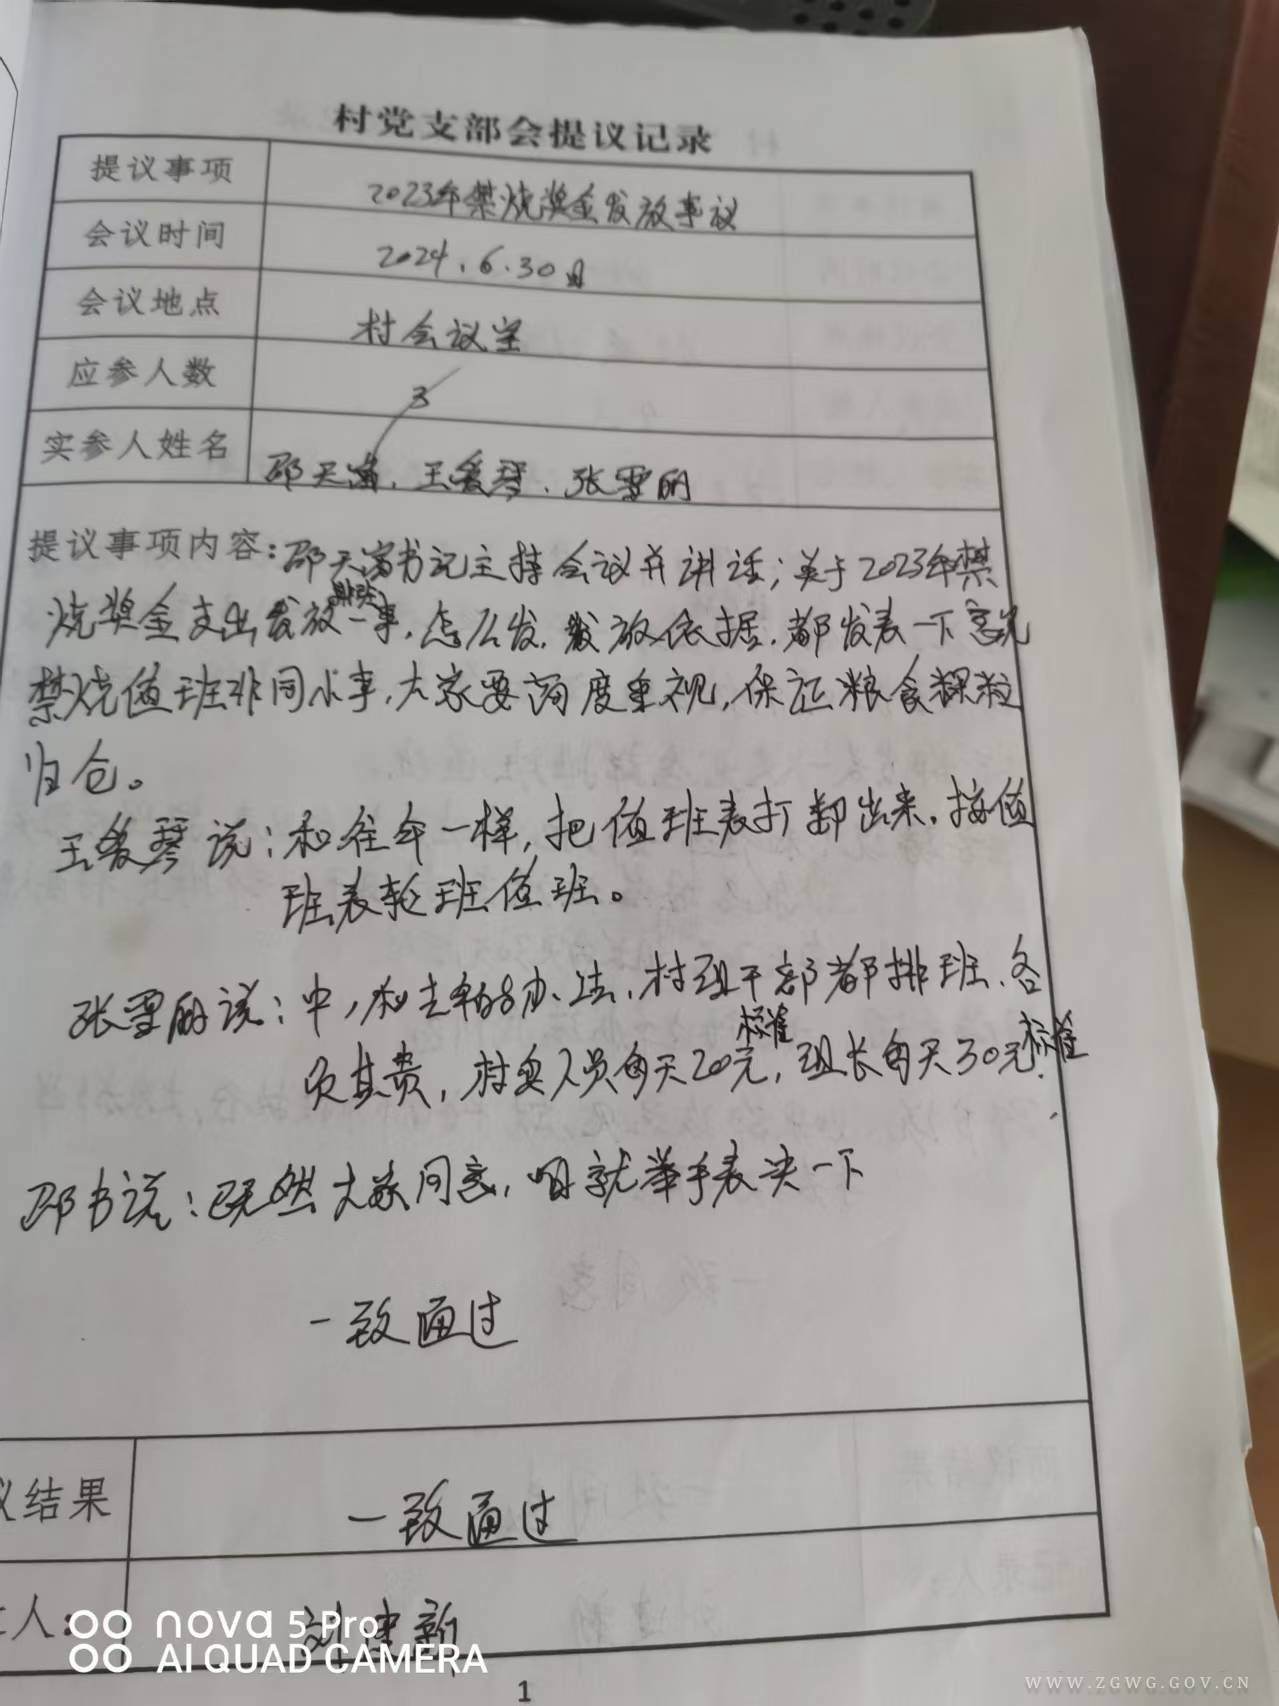 村党支部会提议记录
提议事项 2023年禁烧奖金发放事议
会议时间 2024.6.30日
会议地点 村会议室
应参人数 3
实参人姓名 邵天富、王爱琴、张雪丽
提议事项内容：邵天富书记主持会议并讲话；关于2023年禁
烧奖金支出发放一事，怎么发，发放依据，都发表一下意见
禁烧值班非同小事，大家要高度重视，保证粮食颗粒
归仓。
王爱琴说：和往年一样，把值班表打印出来，按值
班表轮班值班。
张雪丽说：中，和去年的办法，村组干部都排班、各
标准 标准
负其责，村室人员每天20元，组长每天30元，
邵书说：既然大家同意，咱就举手表决一下
一致通过
议结果 一致通过
人： 刘建新
nova 5 Pro
AI QUAD CAMERA
1
WWW.ZGWG.GOV.CN